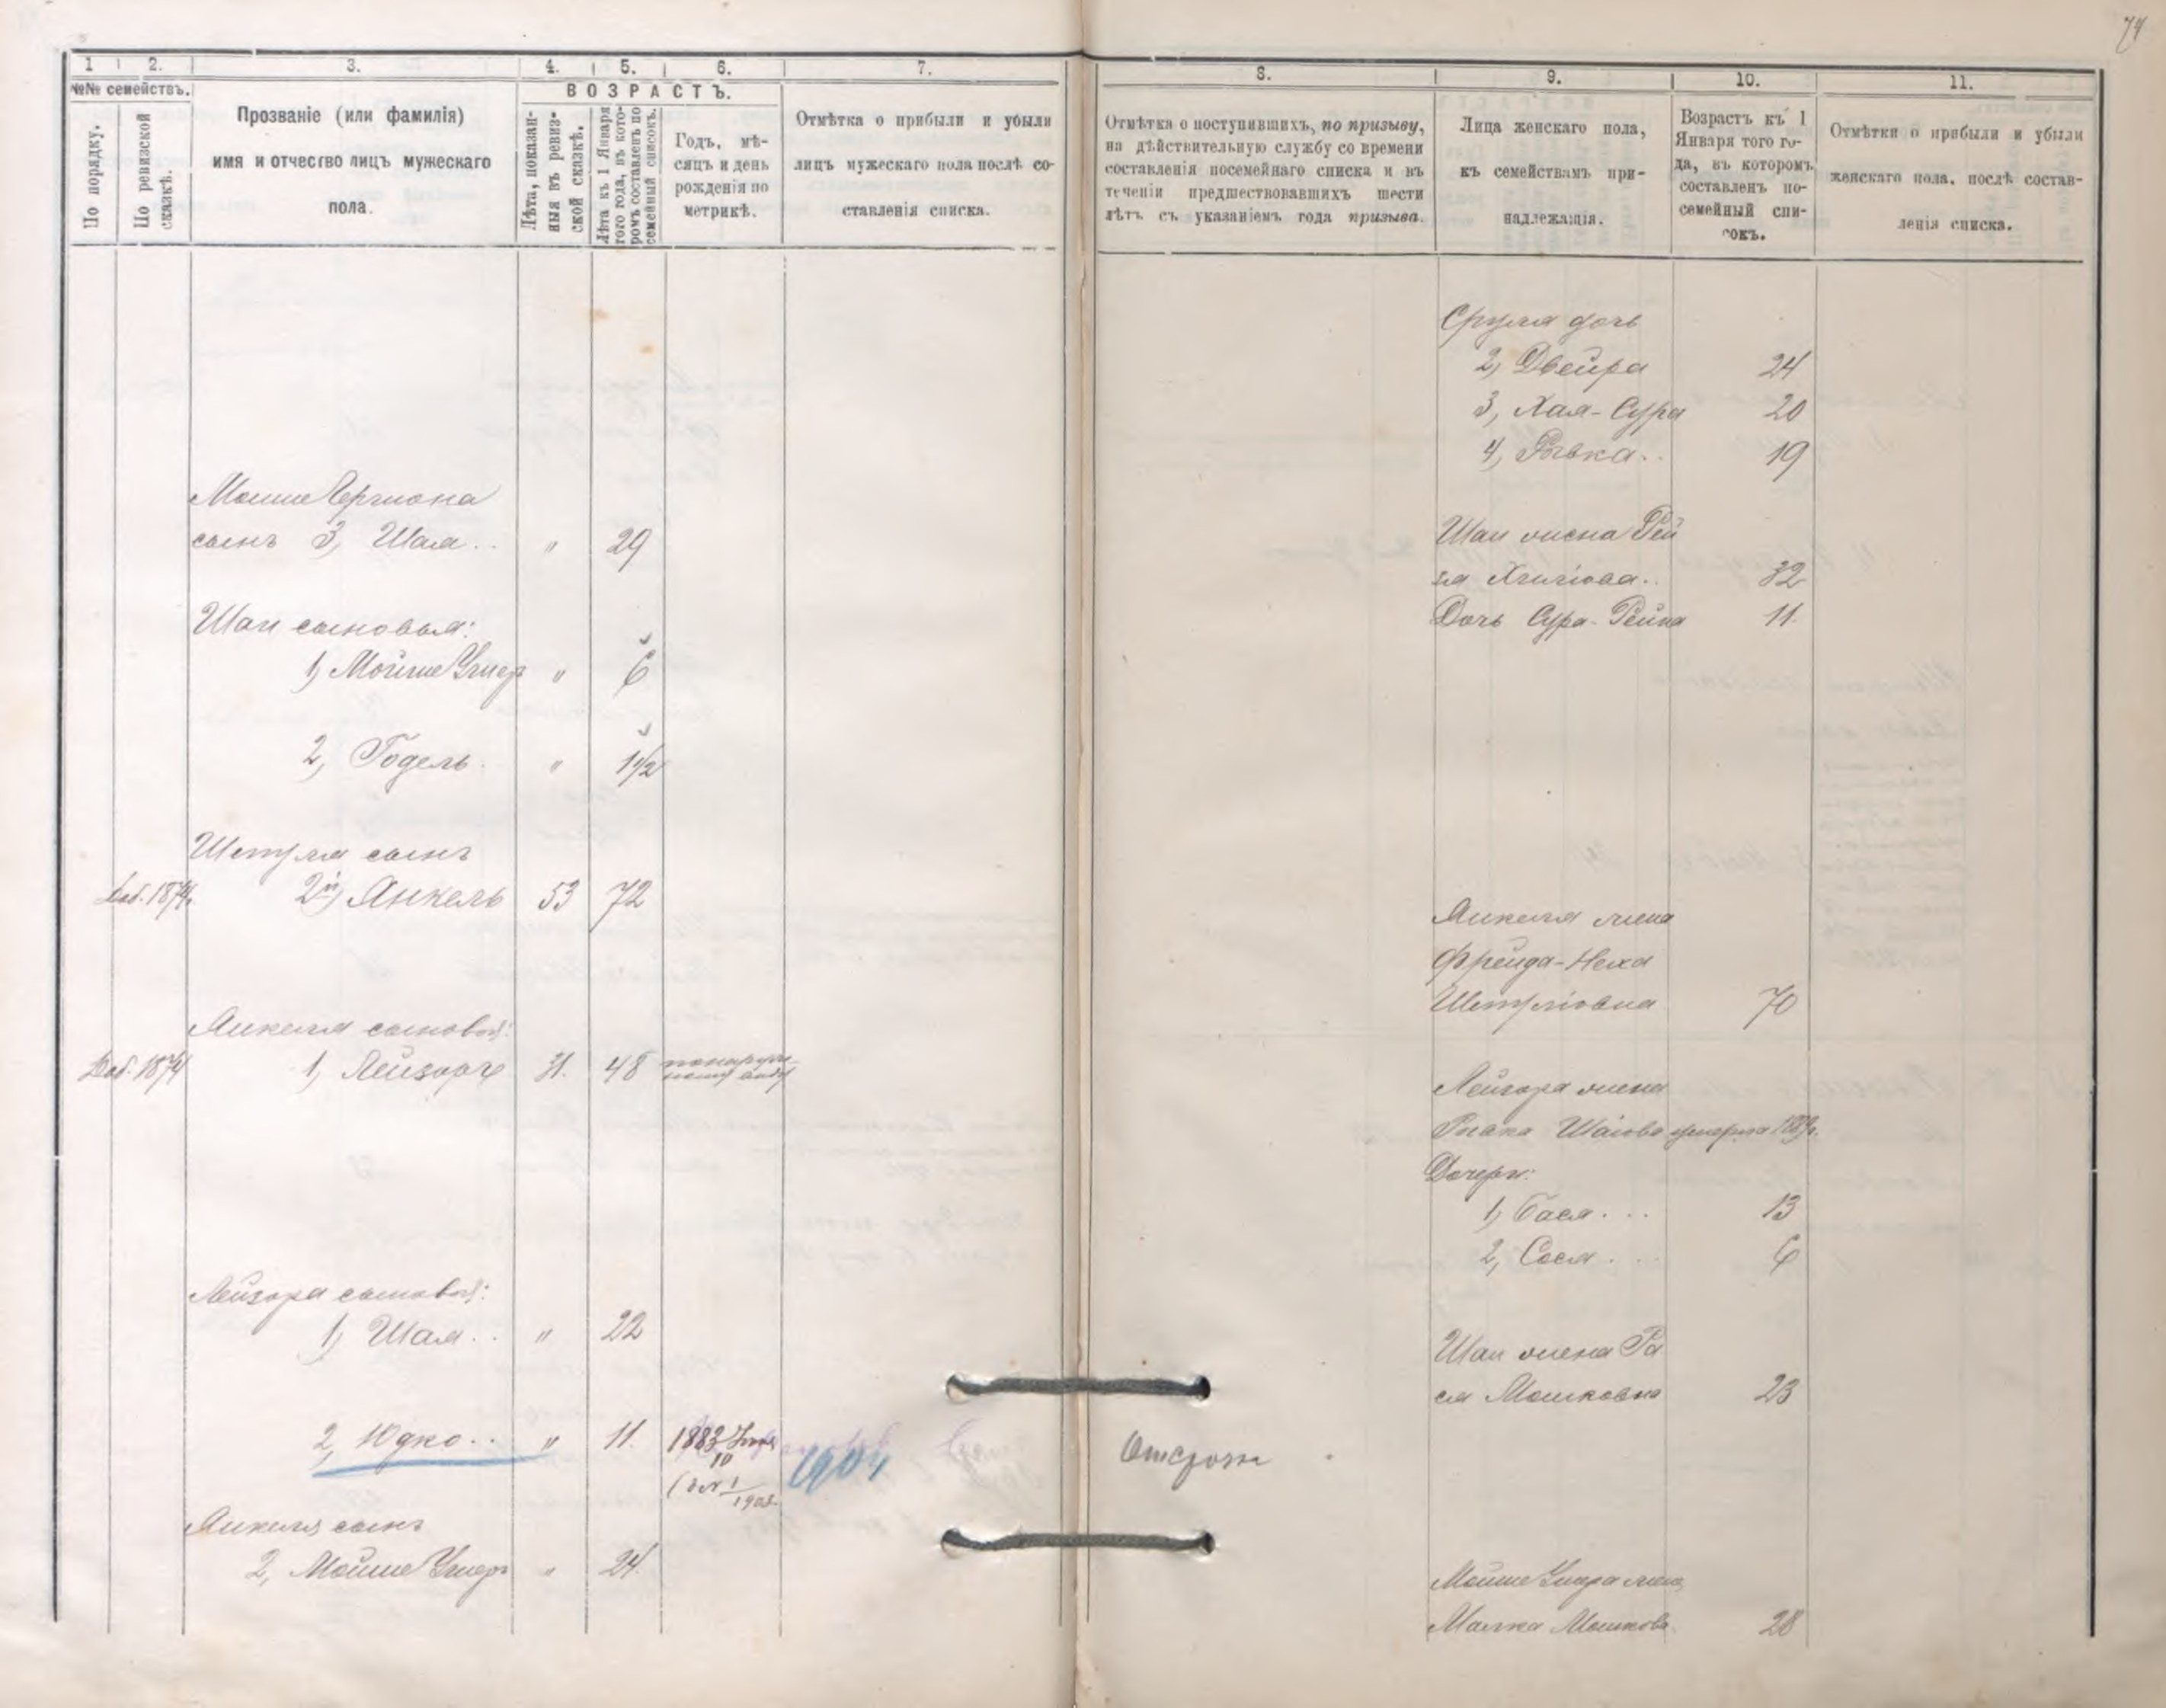 74
1 2. 3. 4. 5. 6. 7.
№№ семействъ.
По порядку.
По ревизской сказкѣ.
Прозваніе (или фамилія)
имя и отчество лицъ мужескаго
пола.
ВОЗРАСТЪ.
Лѣта, показан-
ныя въ ревиз-
ской сказкѣ.
Лѣта къ 1 Января
того года, въ кото-
ромъ составленъ по-
семейный списокъ.
Годъ, мѣ-
сяцъ и день
рожденія по
метрикѣ.
Отмѣтка о прибыли и убыли
лицъ мужескаго пола послѣ со-
ставленія списка.
Моише
сынъ 3, Шая.. " 29
Шаи сыновья:
1, Мойше Умер " 6
2, Годель. " 1½
Шмуля сынъ
Доб. 1874г. 2й, Янкель 53 72
Янкеля сыновья:
Доб. 1874 1, Лейзоръ 31. 48
Лейзора сыновья:
1, Шая.. " 22
2, Юдко.. " 11. 1883
10
1
1903.
1904
Янкеля сынъ
2, Мойше Умеръ " 24.
8. 9. 10. 11.
Отмѣтка о поступившихъ, по призыву,
на дѣйствительную службу со времени
составленія посемейнаго списка и въ
теченіи предшествовавшихъ шести
лѣтъ съ указаніемъ года призыва.
Лица женскаго пола,
къ семействамъ при-
надлежащія.
Возрастъ къ 1
Января того го-
да, въ которомъ
составленъ по-
семейный спи-
сокъ.
Отмѣтки о прибыли и убыли
женскаго пола, послѣ состав-
ленія списка.
Сруля дочь
2, Двейра 24
3, Хая-Сура 20
4, Ривка.. 19
Шаи жена Рей
32
Дочь Сура-Рейза 11.
Янкеля жена
Фрейда-Неха
Шмуліовна 70
Лейзора жена
Шаіова умерла
Дочери:
1, Бася... 13
2, Сося... 6
Шаи жена Ра
ся Мошковна 23
Отсрочк
Мойше Умера жена
Малка Мошкова 28